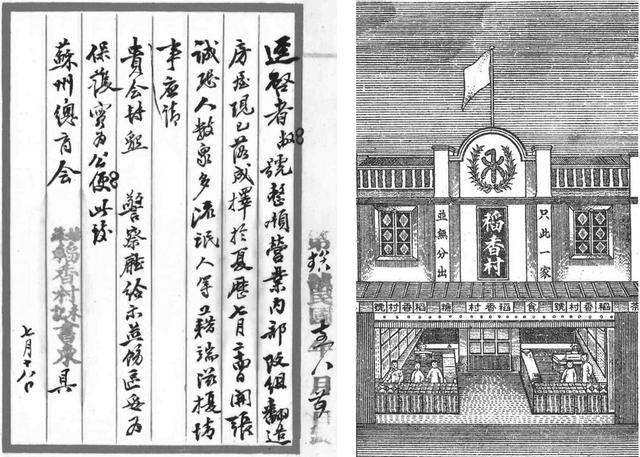 逕啓者敝號整頓營業内部改組翻造
房屋現已落成擇於夏歷七月日開張
誠恐人數衆多流氓人等藉端滋擾情
事應請
貴會轉懇 警察廳給示並飭區妥為
保護實為公便此致
蘇州總商会
稻香村書柬 具
七月十八日
只此一家
稻香村
並無分出
號村香稻
食
號村香稻
茶